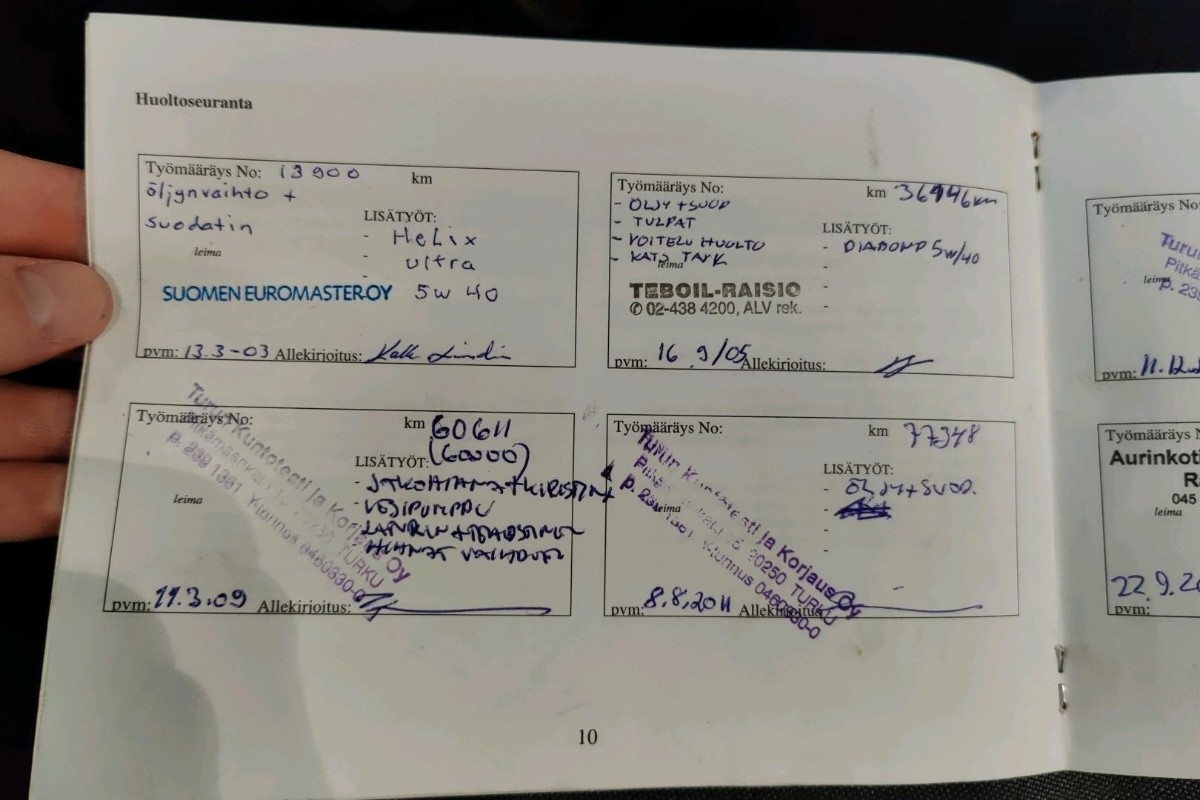 Huoltoseuranta
Työmääräys No: 13 900 km
öljynvaihto +
suodatin
LISÄTYÖT:
- Helix
- ultra
- 5w 40
leima
SUOMEN EUROMASTER OY
pvm: 13.3-03 Allekirjoitus:
Työmääräys No: km 36446 km
- ÖLJY + SUOD
- TULPAT
- VOITELU HUOLTO
- KATS TARK
leima
LISÄTYÖT:
- DIAMOND 5W/40
-
-
-
TEBOIL-RAISIO
✆ 02-438 4200, ALV rek.
pvm: 16 9/05 Allekirjoitus:
Työmääräys No: km 60611
(60000)
LISÄTYÖT:
- JAKOHIHNA + KIRISTIN
- VESIPUMPPU
- LATURIN
- HIHNAT
leima
Turun Kuntotesti ja Korjaus Oy
20250 TURKU
p. 239 1381 Ytunnus 0460330-0
pvm: 11.3.09 Allekirjoitus:
Työmääräys No: km 77348
LISÄTYÖT:
- ÖLJY + SUOD.
-
-
-
leima
Turun Kuntotesti ja Korjaus Oy
20250 TURKU
p. 239 1381 Ytunnus 0460330-0
pvm: 8.8.2011 Allekirjoitus:
10
Työmääräys No:
Turun
Pitkä
leima
p. 239
pvm: 11.
Työmääräys N
Aurinkoti
R
045
leima
22.9.20
pvm: